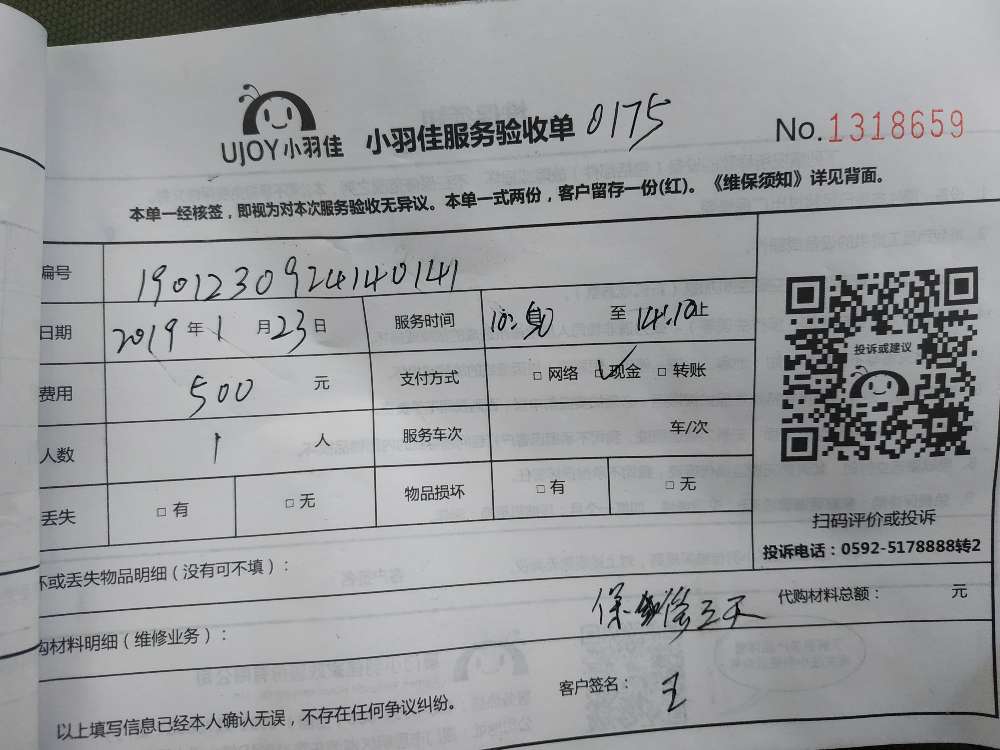 UJOY小羽佳 小羽佳服务验收单 0175 No.1318659
本单一经核签，即视为对本次服务验收无异议。本单一式两份，客户留存一份(红)。《维保须知》详见背面。
编号 1901230924140141
日期 2019年1月23日 服务时间 10: 至 14:10止
费用 500 元 支付方式 □ 网络 □现金 □ 转账
人数 1 人 服务车次 车/次
丢失 □ 有 □ 无 物品损坏 □ 有 □ 无
投诉或建议
扫码评价或投诉
投诉电话：0592-5178888转2
坏或丢失物品明细（没有可不填）：
购材料明细（维修业务）： 保修三天 代购材料总额： 元
以上填写信息已经本人确认无误，不存在任何争议纠纷。 客户签名： 王